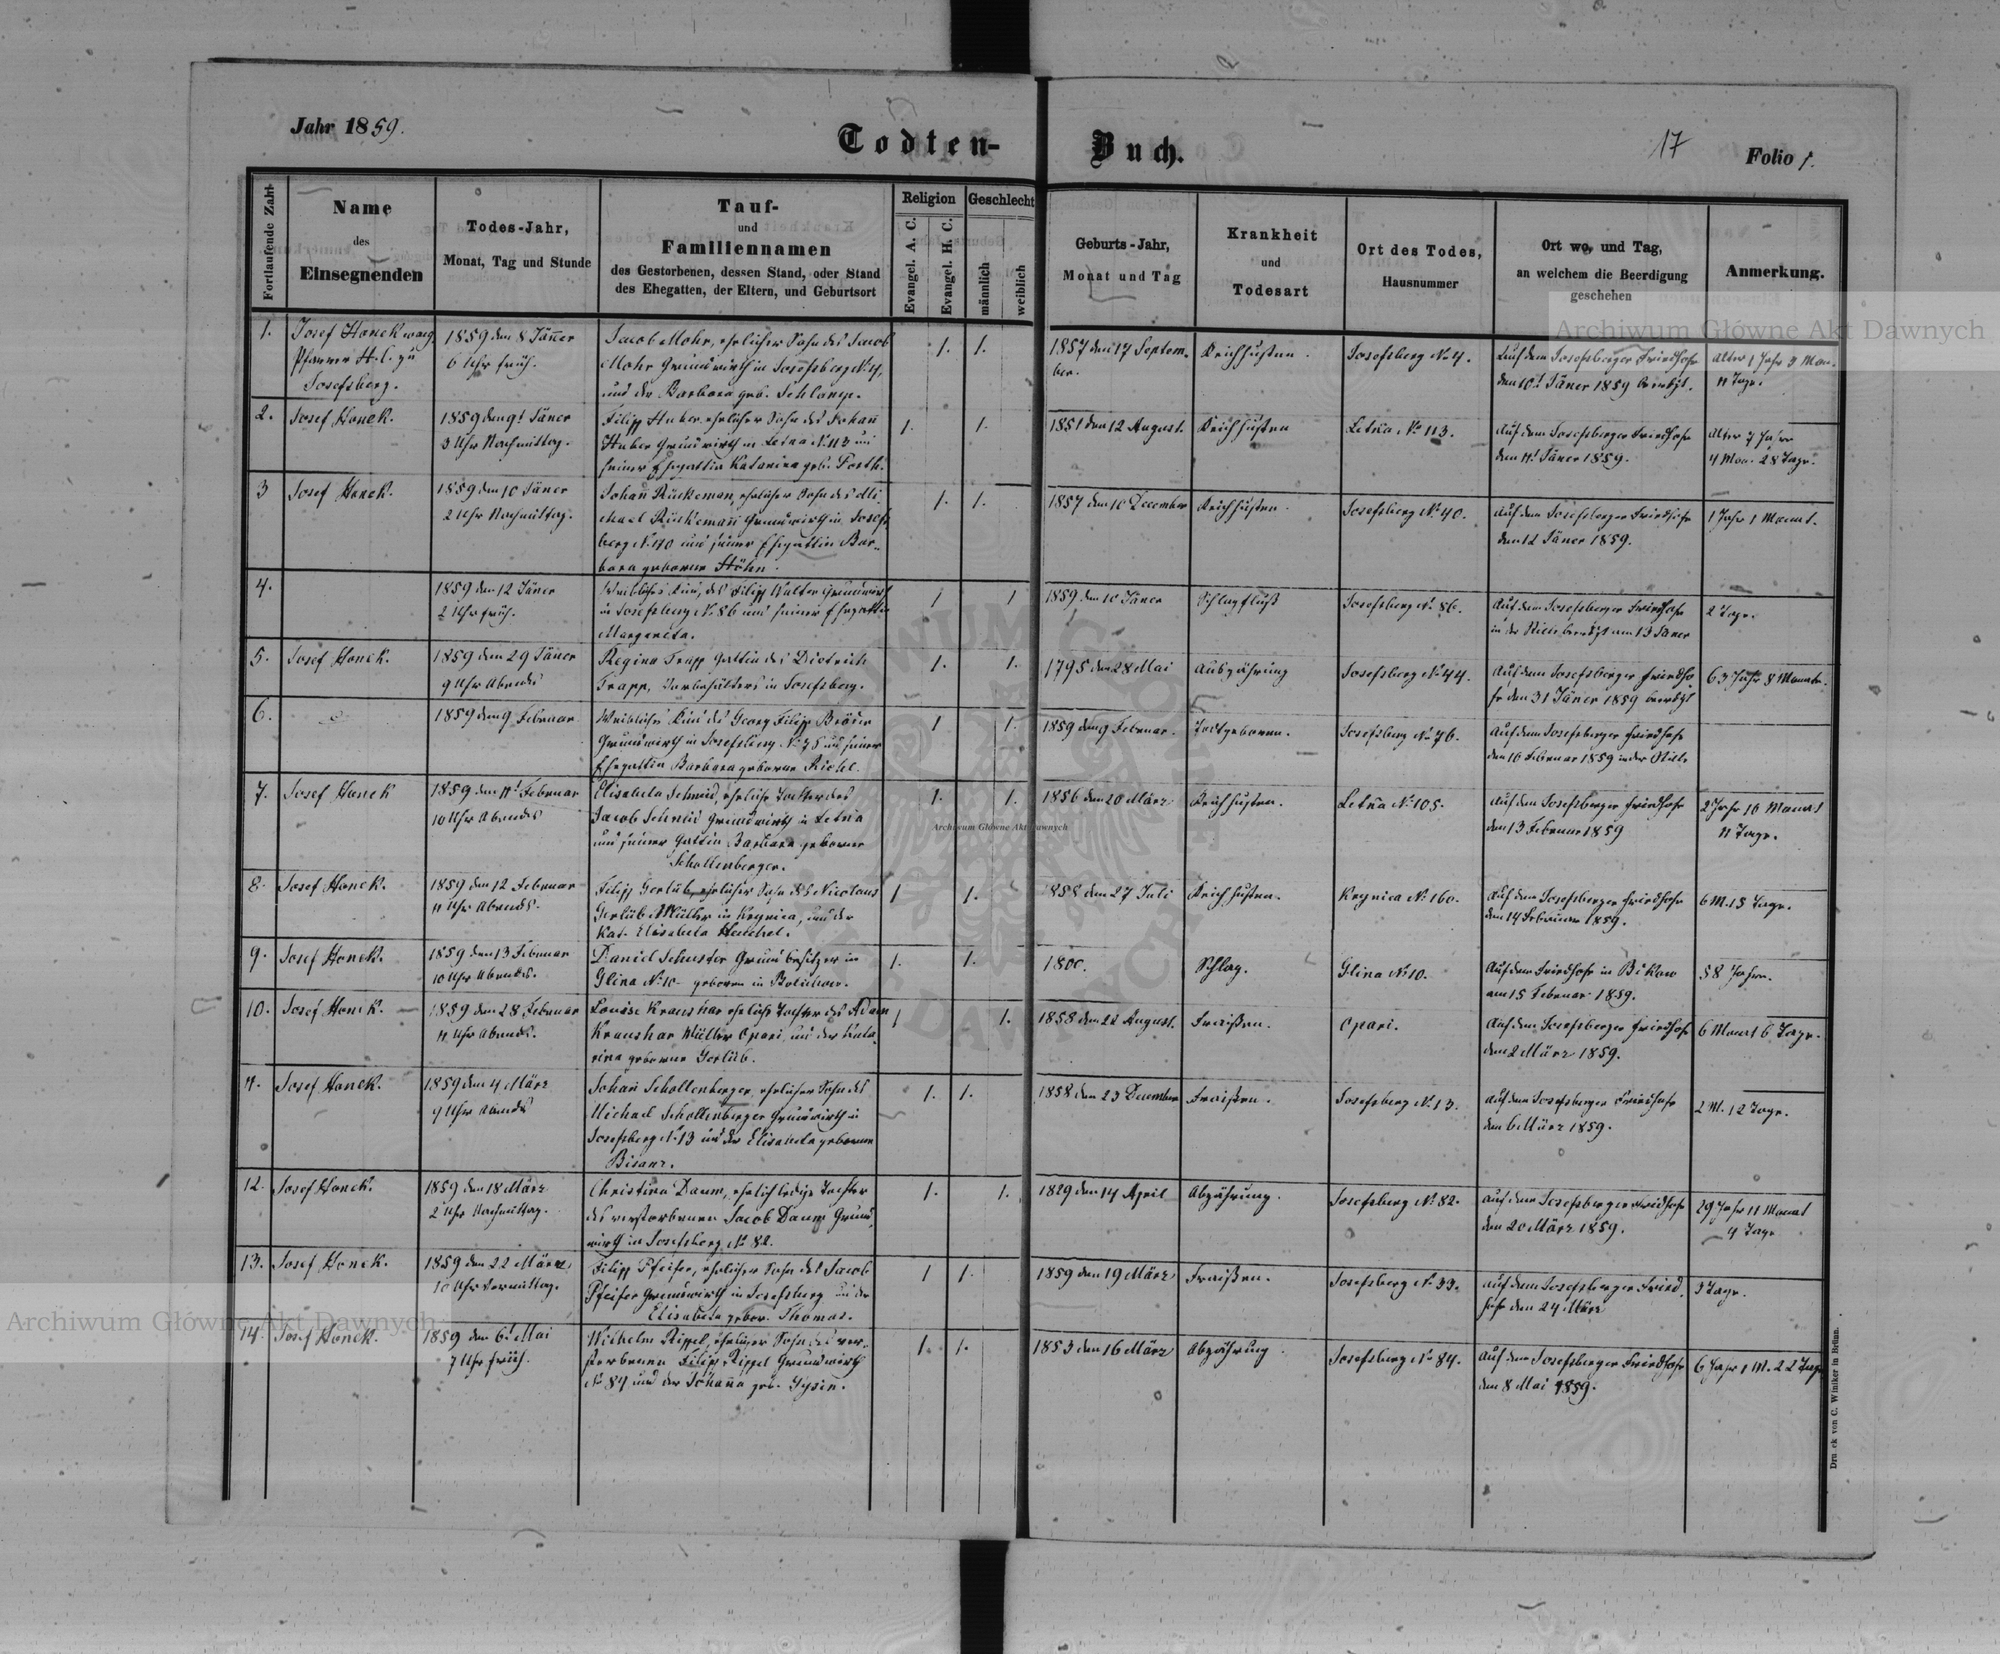 Jahr 1859.
Todten-
Buch.
17
Folio 1.
Fortlaufende Zahl.
Name
des
Einsegnenden
Todes-Jahr,
Monat, Tag und Stunde
Tauf-
und
Familiennamen
des Gestorbenen, dessen Stand, oder Stand
des Ehegatten, der Eltern, und Geburtsort
Religion
Evangel. A. C.
Evangel. H. C.
Geschlecht
männlich
weiblich
Geburts-Jahr,
Monat und Tag
Krankheit
und
Todesart
Ort des Todes,
Hausnummer
Ort wo, und Tag,
an welchem die Beerdigung
geschehen
Anmerkung.
1.
Josef Honek
Pfarrer H. C. zu
Josefsberg.
1859 den 8 Jäner
6 Uhr früh.
Jacob Mohr, ehelicher Sohn des Jacob
Mohr Grundwirth in Josefsberg N. 4,
und der Barbara geb. Schlange.
1.
1.
1857 den 17 Septem-
ber.
Keichhusten.
Josefsberg No 4.
Auf dem Josefsberger Friedhofe
den 10t Jäner 1859
alter 1 Jahr 3 Mon.
11 Tage.
2.
Josef Honek.
1859 den 9t Jäner
3 Uhr Nachmittag.
Filipp Huber ehelicher Sohn des Johañ
Huber Grundwirth in Letna N. 113 und
seiner Ehegattin Katarina geb. Forth.
1.
1.
1851 den 12 August.
Keichhusten
Letña No 113.
Auf dem Josefsberger Friedhofe
den 11t Jäner 1859.
alter 7 Jahre
4 Mon. 28 Tage.
3
Josef Honek.
1859 den 10 Jäner
2 Uhr Nachmittag.
Johañ Rückeman, ehelicher Sohn des Mi
chael Rückemañ Grundwirth in Josefs
berg N. 40 und seiner Ehegattin Bar-
bara geborne Höhn.
1.
1.
1857 den 10 December
Keichhusten.
Josefsberg No 40.
Auf dem Josefsberger Friedhofe
den 12 Jäner 1859.
1 Jahr 1 Monat.
4.
1859 den 12 Jäner
2 Uhr früh.
Weibliches Kind, des Filipp Walter Grundwirth
in Josefsberg No 86 und seiner Ehegattin
Margareta.
1
1
1859 den 10 Jäner
Schlagfluß
Josefsberg No 86.
Auf dem Josefsberger Friedhofe
in der Stille beerdigt am 13 Jäner
2 Tage.
5.
Josef Honek.
1859 den 29 Jäner
9 Uhr Abends
Regina Trapp Gattin des Dietrich
Trapp, in Josefsberg.
1.
1.
1795 den 28 Mai
Auszährung
Josefsberg No 44.
Auf dem Josefsberger Friedho
fe den 31 Jäner 1859 beerdigt
63 Jahr 8 Monate.
6.
1859 den 9 Februar
Weibliches Kind des Georg Filipp Bröder
Grundwirth in Josefsberg No und seiner
Ehegattin Barbara geborne Richl.
1
1.
1859 den 9 Februar.
Todtgeboren.
Josefsberg No 76.
Auf dem Josefsberger Friedhofe
den 10 Februar 1859 in der Stille
7.
Josef Honek
1859 den 11t Februar
10 Uhr Abends
Elisabeta Schmid, eheliche Tochter des
Jacob Schmid Grundwirth in Letña
und seiner Gattin Barbara geborne
Schollenberger.
1.
1.
1856 den 20 März
Keichhusten.
Letña No 105.
Auf dem Josefsberger Friedhofe
den 13 Februar 1859
2 Jahr 10 Monat
11 Tage.
8.
Josef Honek.
1859 den 12 Februar
11 Uhr Abends.
Filipp Gerlüb, ehelicher Sohn des Nicolaus
Gerlüb Müller in Krynica, und der
Kat. Elisabeta Henchel.
1
1.
1858 den 27 Juli
Keichhusten.
Krynica No 160.
Auf dem Josefsberger Friedhofe
den 14 Februar 1859.
6 M. 15 Tage.
9.
Josef Honek.
1859 den 13 Februar
10 Uhr Abends.
Daniel Schuster Grundbesitzer in
Glina No 10 geboren in Bolichow.
1.
1.
1800.
Schlag.
Glina No 10.
Auf dem Friedhofe in Bikow
am 15 Februar 1859.
58 Jahre.
10.
Josef Honek.
1859 den 28 Februar
11 Uhr Abends.
Louise Kraushar eheliche Tochter des Adam
Kraushar Müller Opari, und der Kata
rina geborne Gerlüb.
1
1.
1858 den 22 August.
Fraißen.
Opari.
Auf dem Josefsberger Friedhofe
den 2 März 1859.
6 Monat 6 Tage.
11.
Josef Honek.
1859 den 4 März
9 Uhr Abends
Johañ Schollenberger, ehelicher Sohn des
Michael Schollenberger Grundwirth in
Josefsberg No 13 und der Elisabeta geborne
Bisanz.
1.
1.
1858 den 23 December
Fraißen.
Josefsberg No 13.
Auf dem Josefsberger Friedhofe
den 6 März 1859.
2 M. 12 Tage.
12.
Josef Honek.
1859 den 18 März
2 Uhr Nachmittag.
Christina Daum, ehelich ledige Tochter
des verstorbenen Jacob Daum Grund
wirth in Josefsberg No 82.
1.
1.
1829 den 14 April
Abzährung.
Josefsberg No 82.
Auf dem Josefsberger Friedhofe
den 20 März 1859.
29 Jahr 11 Monat
4 Tage
13.
Josef Honek.
1859 den 22 März
10 Uhr Vormittag.
Filipp Pfeifer, ehelicher Sohn des Jacob
Pfeifer Grundwirth in Josefsberg und der
Elisabeta gebor. Thomas.
1
1.
1859 den 19 März
Fraißen.
Josefsberg No 33.
Auf dem Josefsberger Fried
hofe den 24 März
3 Tage.
14.
Josef Honek.
1859 den 6t Mai
7 Uhr früh.
Wilhelm Rippel, ehelicher Sohn des ver-
storbenen Filipp Rippel Grundwirth
No 84 und der Johaña geb. Gysin.
1.
1.
1853 den 16 März
Abzährung.
Josefsberg No 84.
Auf dem Josefsberger Friedhofe
den 8 Mai 1859.
6 Jahr 1 M. 22 Tage
Druck von C. Winiker in Brünn.
Archiwum Główne Akt Dawnych
Archiwum Główne Akt Dawnych
Archiwum Główne Akt Dawnych
ARCHIWUM GŁÓWNE AKT DAWNYCH